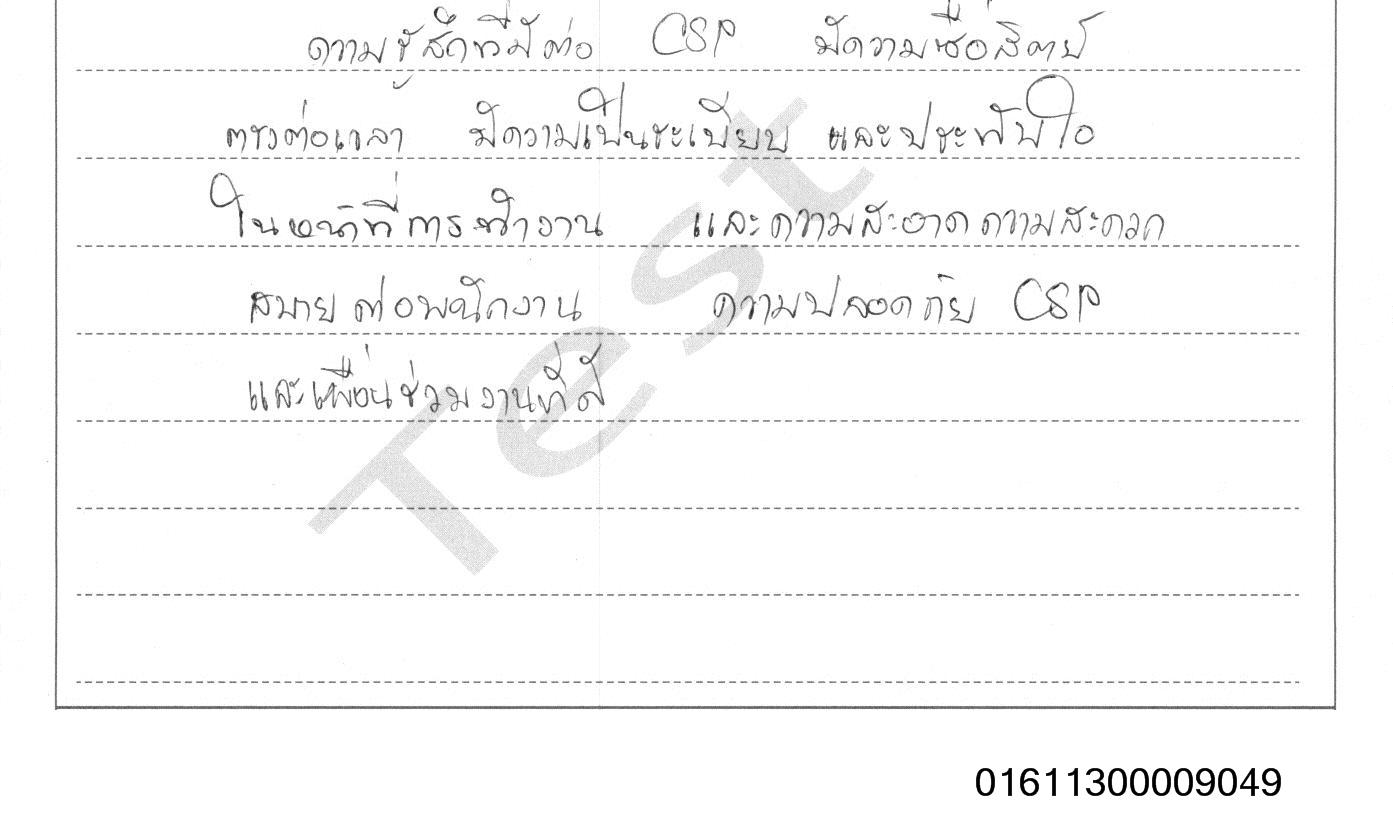 ความรู้สึกที่มีต่อ CSP มีความซื่อสัตย์
ตรงต่อเวลา มีความเป็นระเบียบ และประทับใจ
ในหน้าที่การทำงาน และความสะอาด ความสะดวก
สบาย ต่อพนักงาน ความปลอดภัย CSP
และเพื่อนร่วมงานที่ดี
Test
01611300009049